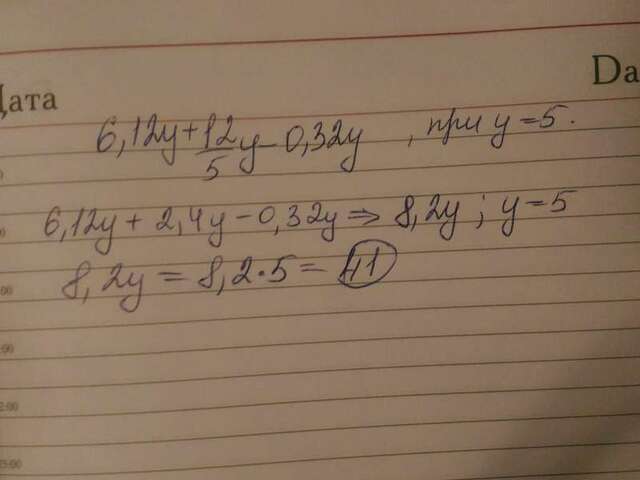 Дата Da
6,12y + 12/5 y - 0,32y , при y = 5.
6,12y + 2,4y - 0,32y => 8,2y ; y = 5
8,2y = 8,2 · 5 = 41